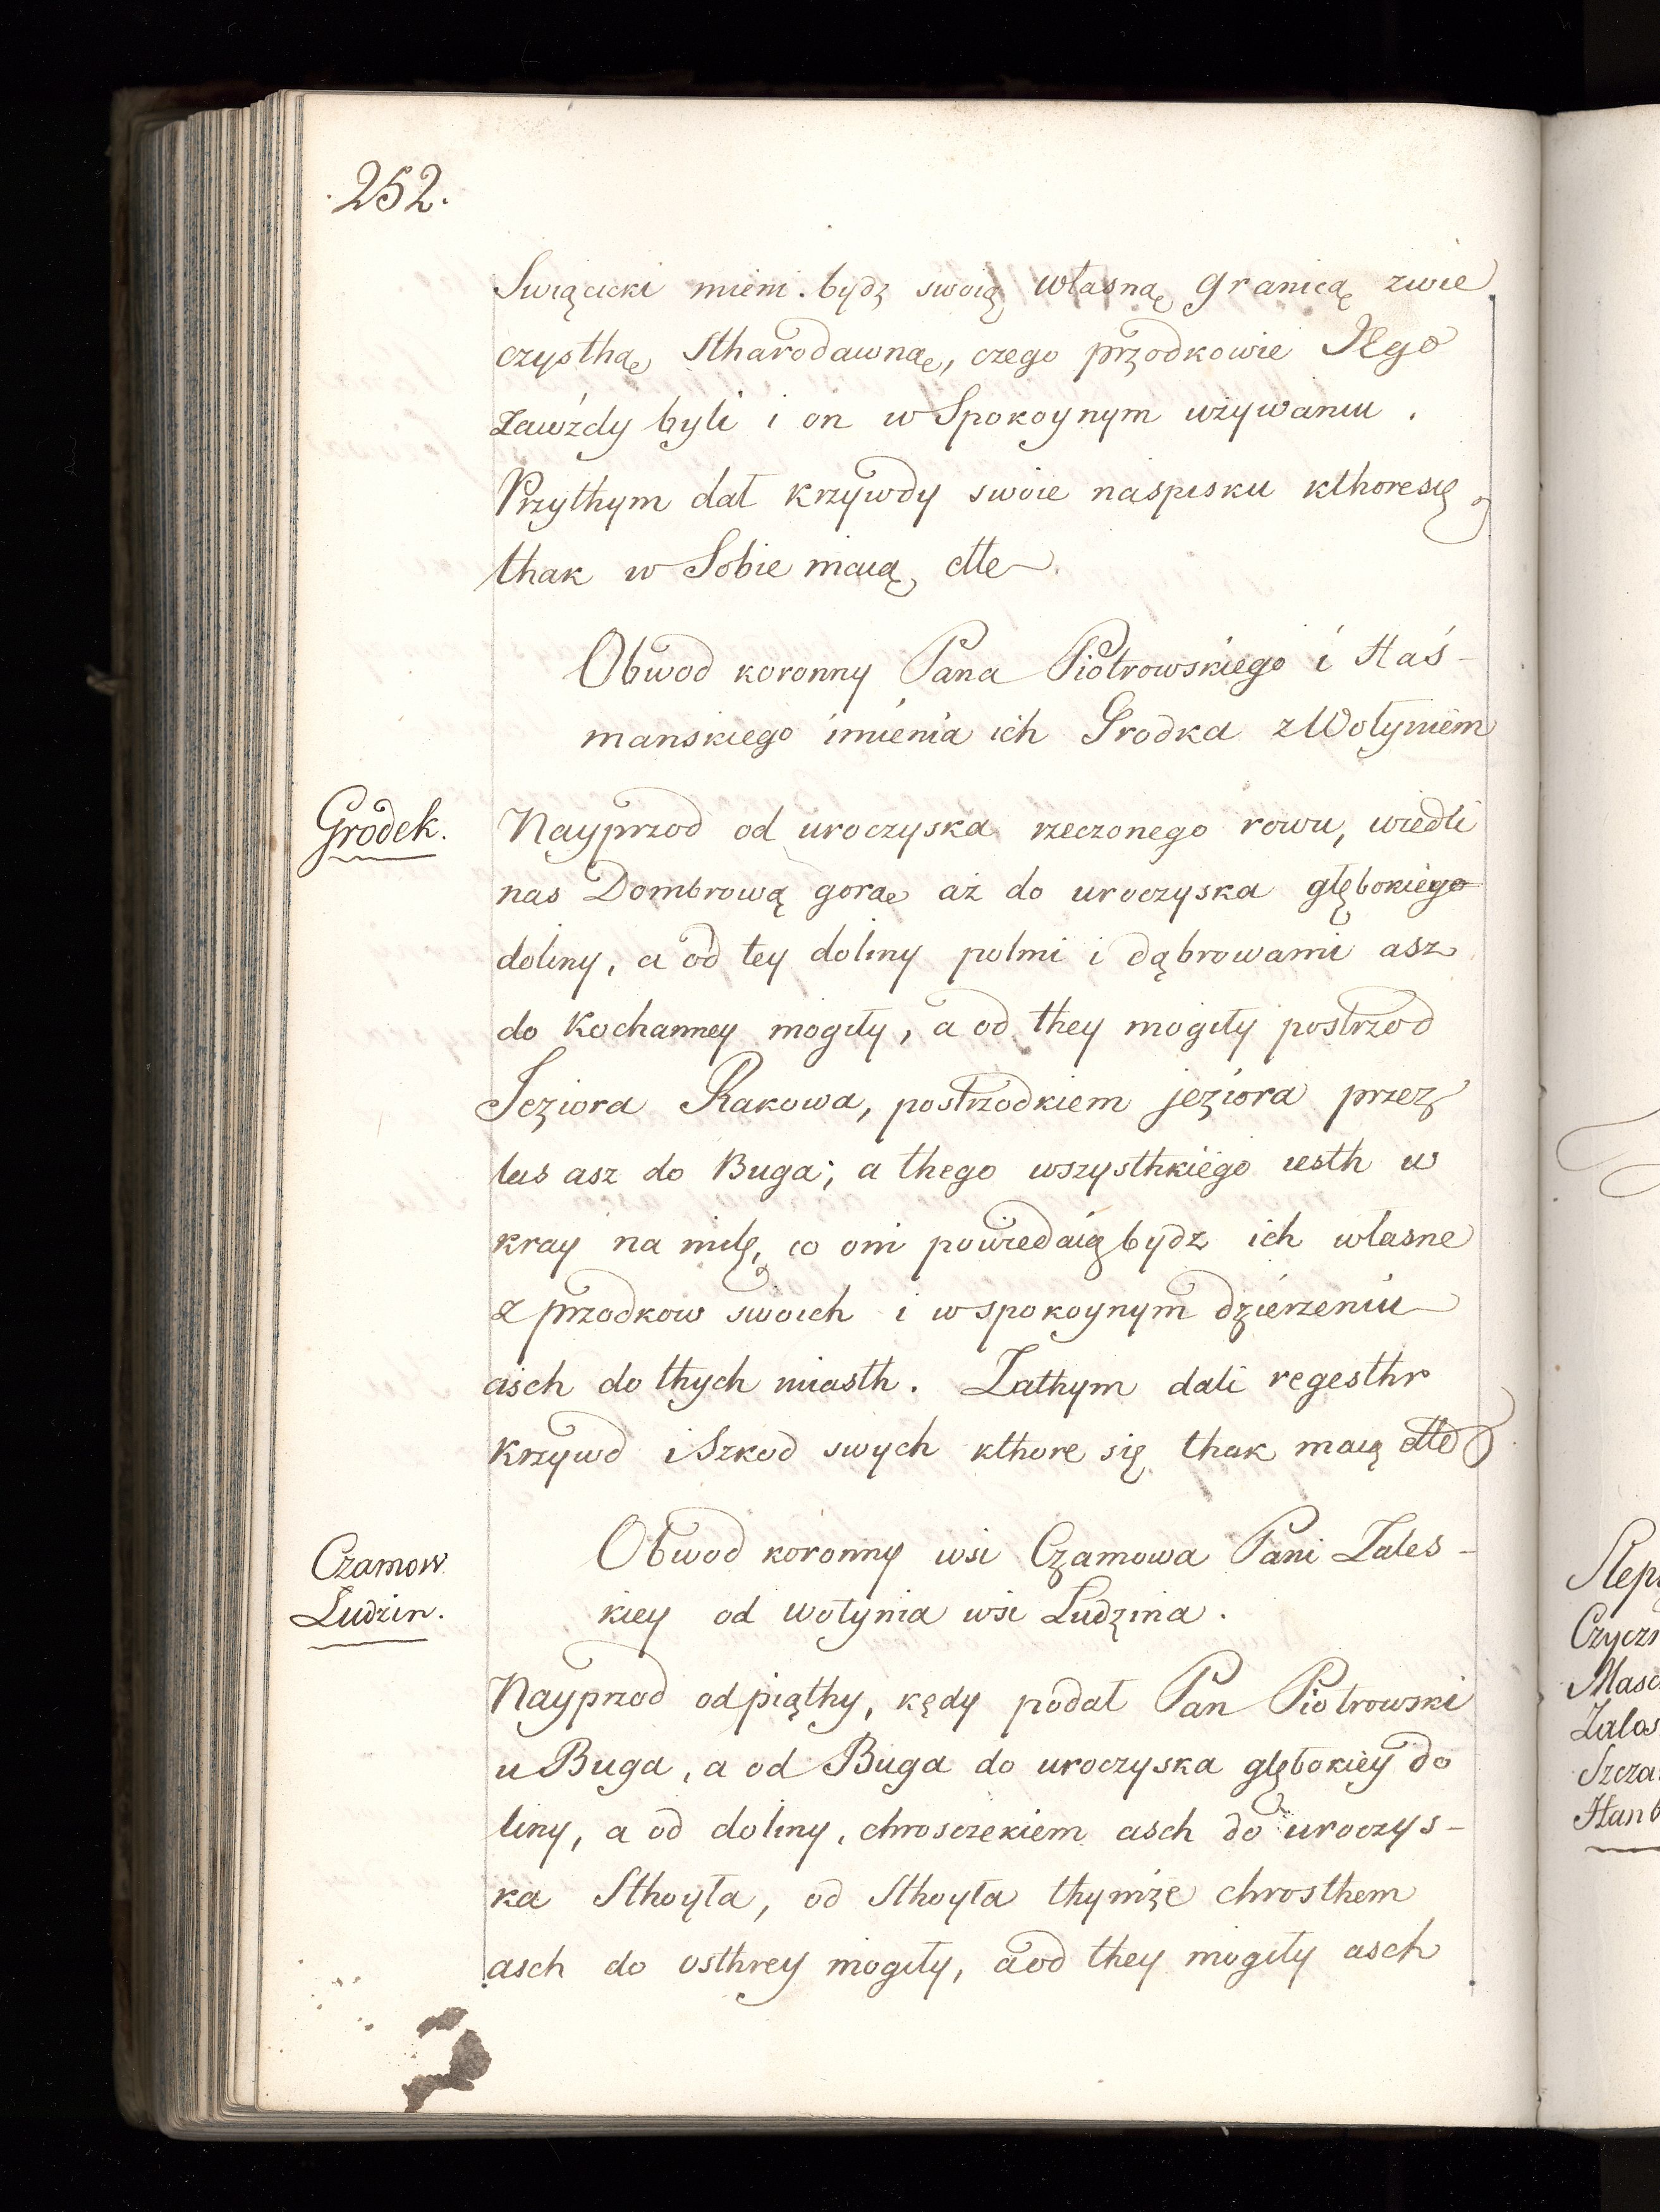 .252.
Swiącicki mieni. bydz swoią własną granicą zwie
czysthą stharodawną, czego przodkowie Jego
zawżdy byli i on w Spokoynym używaniu.
Przythym dał krzywdy swoie naspisku kthoresię
thak w Sobie maią, ettc
Obwod koronny Pana Piotrowskiego i Haś-
manskiego imienia ich Grodka z Wołyniem
Grodek.
Nayprzod od uroczyska rzeczonego rowu, wiedli
nas Dombrową gorą aż do uroczyska głębokiego
doliny, a od tey doliny polmi i dąbrowami asz
do Kochanney mogiły, a od they mogiły postrzod
Jeziora Rakowa, postrzodkiem jeziora przez
las asz do Buga; a thego wszysthkiego iesth w
kray na milę, co oni powiedaią bydz ich własne
z przodkow swoich i w spokoynym dzierzeniu
asch do thych miasth. Zathym dali regesthr
krzywd i Szkod swych kthore się thak maią ettc
Czamow
Ludzin.
Obwod koronny wsi Czamowa Pani Zales-
kiey od wołynia wsi Ludzina.
Nayprzod odpiąthy, kędy podał Pan Piotrowski
u Buga, a od Buga do uroczyska głębokiey do
liny, a od doliny, chrosczekiem asch do uroczys-
ka Sthoyła, od Sthoyła thymże chrosthem
asch do osthrey mogiły, a od they mogiły asch